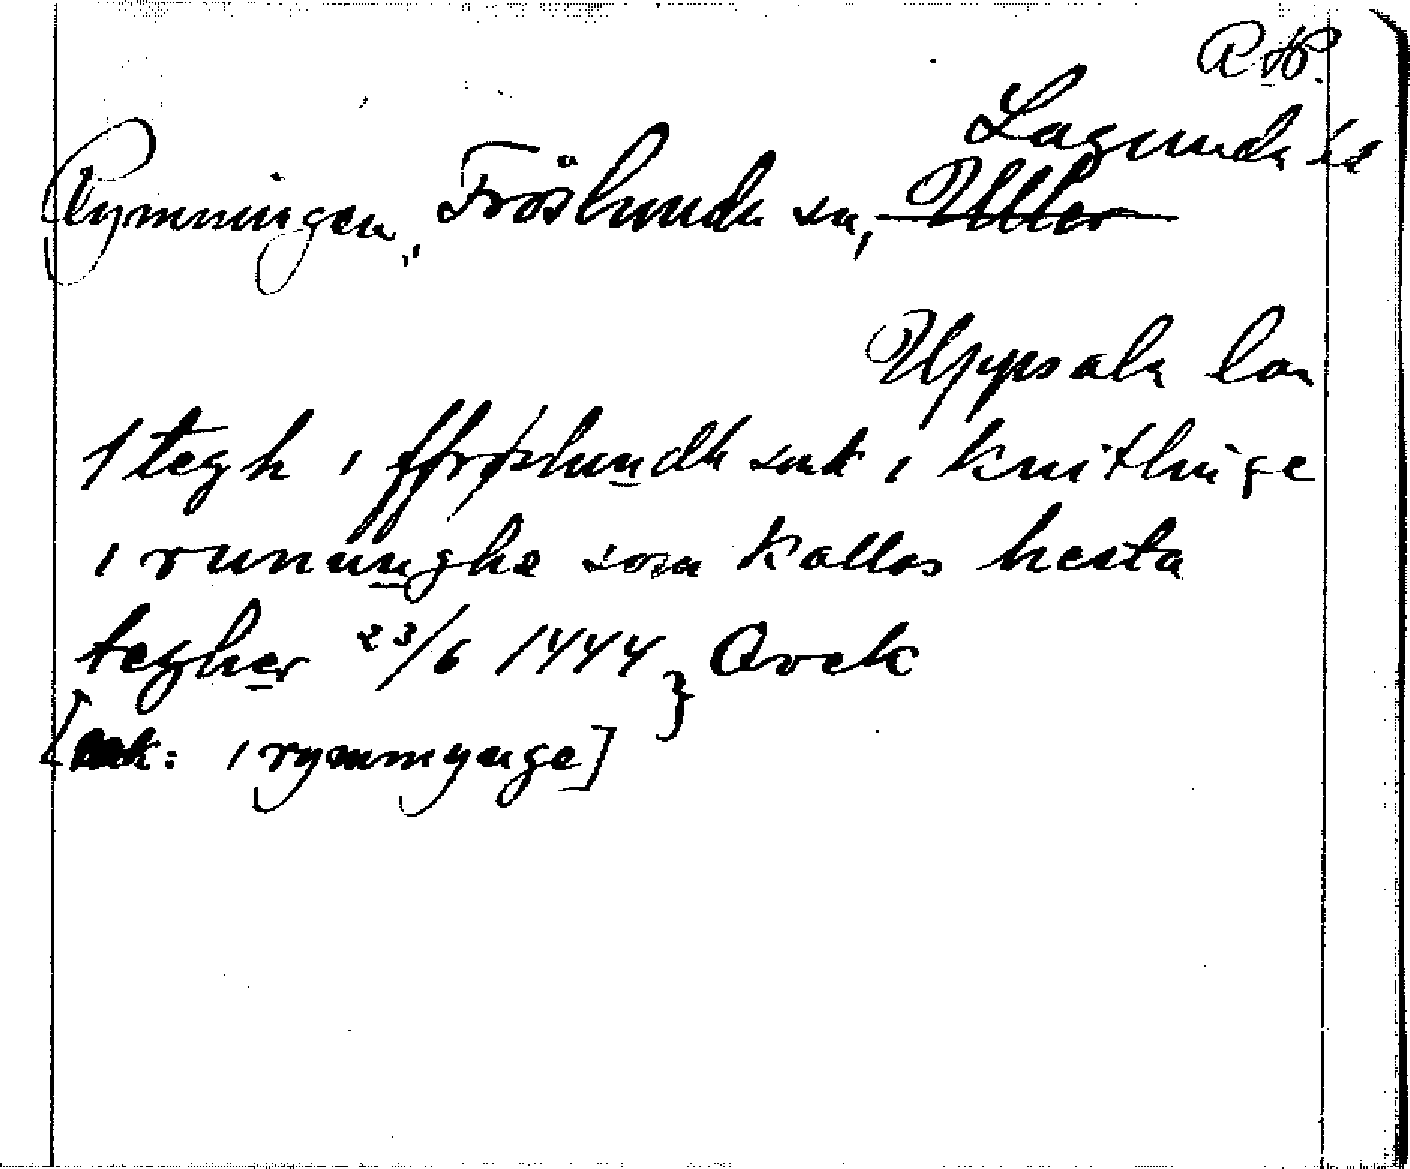 R HP.
Lagunda hd
Rymningen, Fröslunda sn, Uller
Uppsala län
1 tegh i ffrøslundh sok i knithinge
i runninghe som kallas hesta
tegher 23/6 1444 } Orek
[rek: i rymmynge]